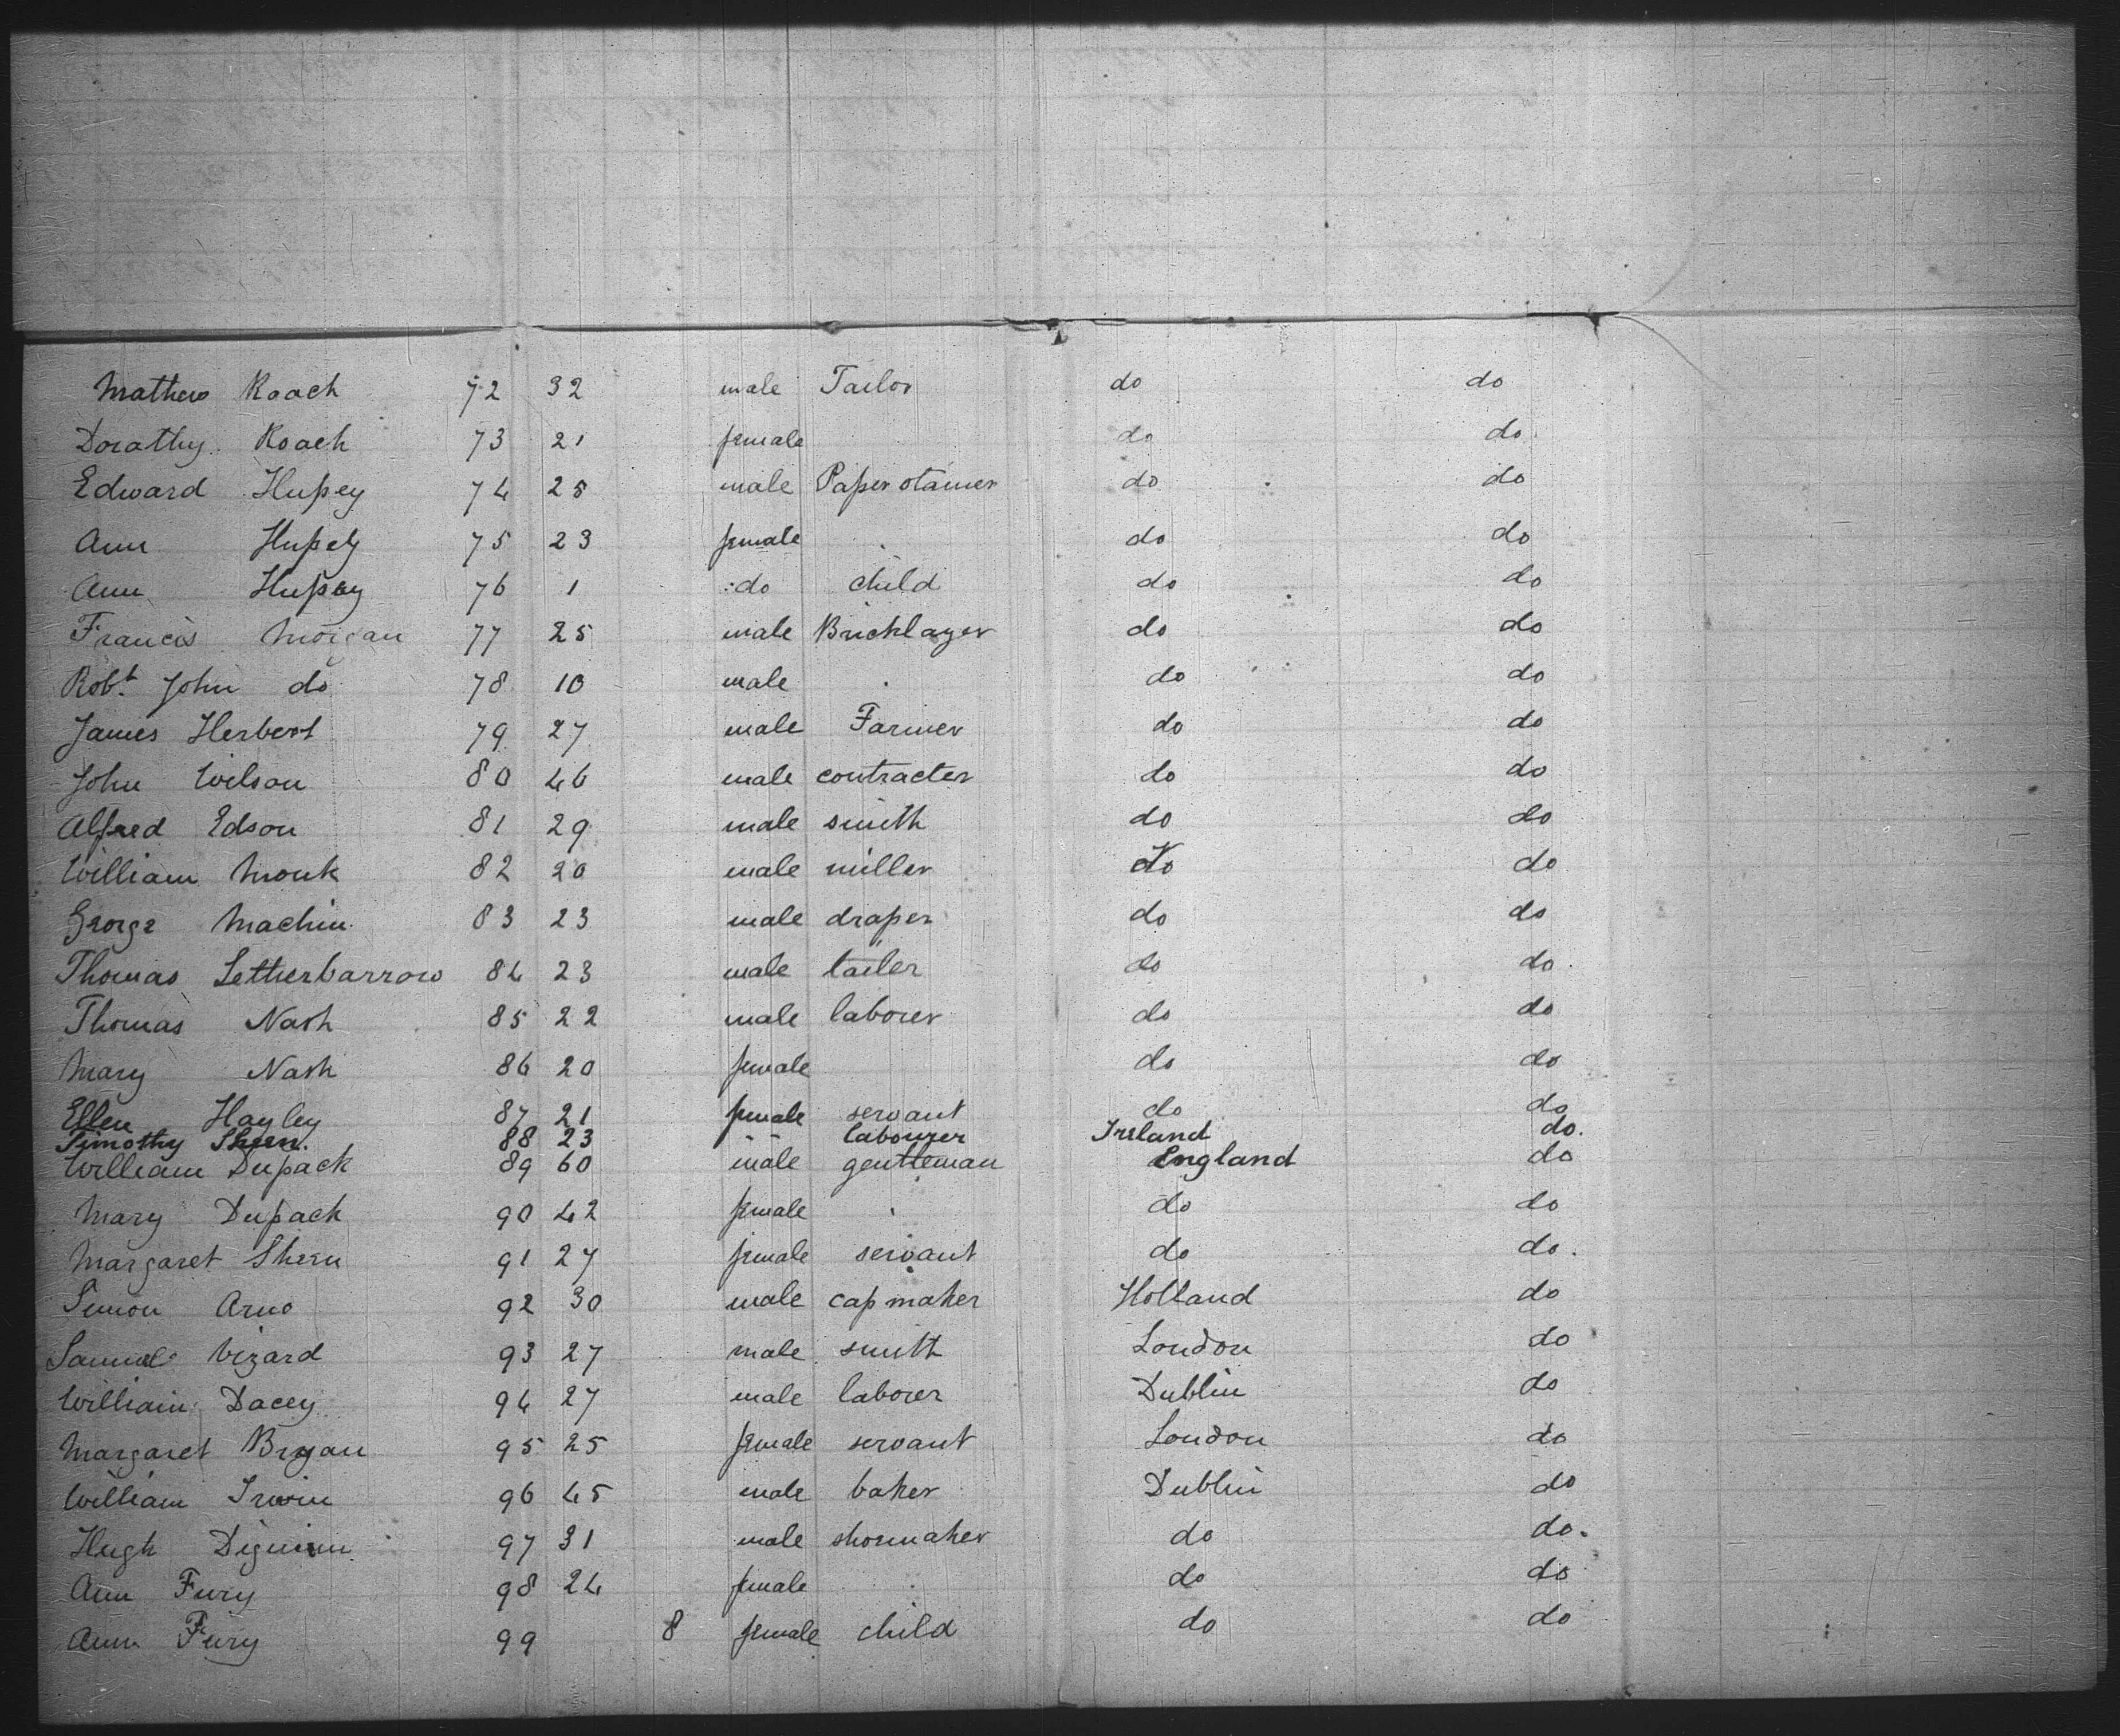 Mathew Roach 72 32 male Tailor do do
Dorathy Roach 73 21 female do do
Edward Hupey 74 25 male Paper stainer do do
Ann Hupey 75 23 female do do
Ann Hupey 76 1 do child do do
Francis Morgan 77 25 male Bricklayer do do
Robt John do 78 10 male do do
James Herbert 79 27 male Farmer do do
John Wilson 80 46 male contracter do do
Alfred Edson 81 29 male smith do do
William Monk 82 20 male miller do do
George Machin 83 23 male draper do do
Thomas Letherbarrow 84 23 male tailer do do
Thomas Nash 85 22 male laborer do do
Mary Nash 86 20 female do do
Ellen Hayley 87 21 female servant do do
Timothy Sheen 88 23 labourer Ireland do.
William Dupack 89 60 male gentleman England do
Mary Dupack 90 42 female do do
Margaret Shern 91 27 female servant do do.
Simon Arno 92 30 male cap maker Holland do
Samuel Vizard 93 27 male smith London do
William Dacey 94 27 male laborer Dublin do
Margaret Bryan 95 25 female servant London do
William Irwin 96 45 male baker Dublin do
Hugh 97 31 male shoemaker do do.
Ann Fury 98 24 female do do
Ann Fury 99 8 female child do do